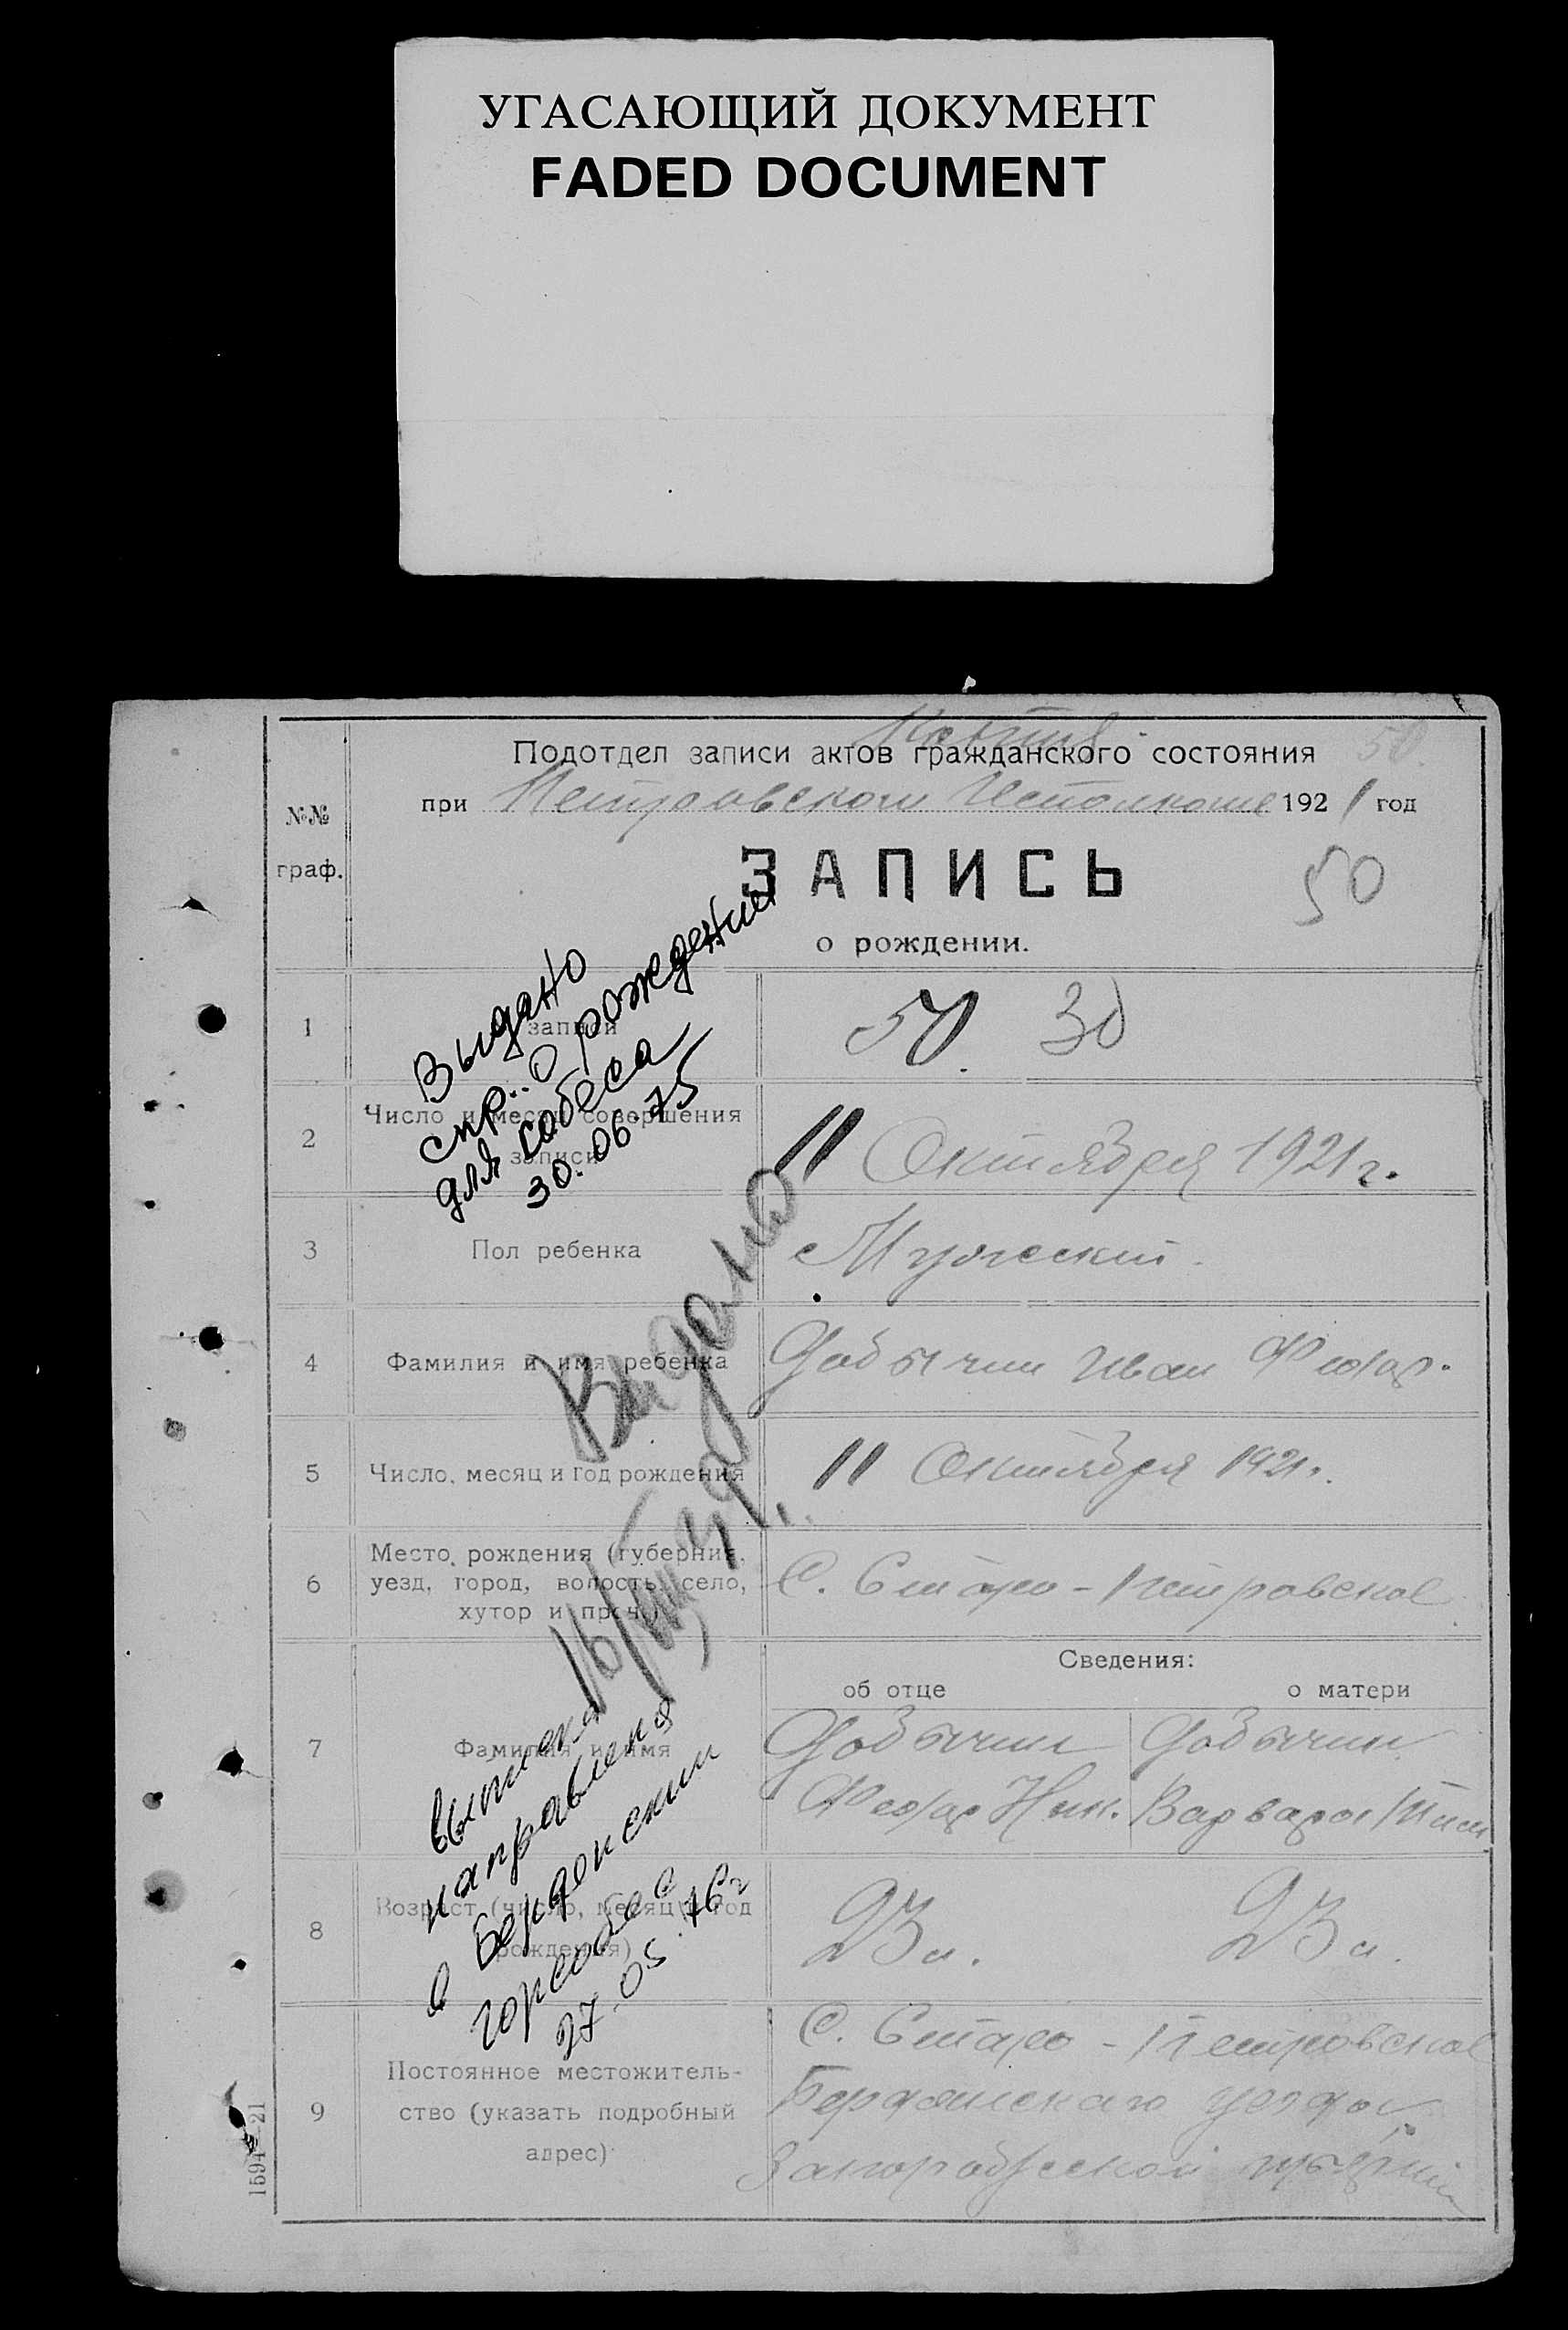 УГАСАЮЩИЙ ДОКУМЕНТ
FADED DOCUMENT
Подотдел записи актов гражданского состояния 50.
при Петровском Исполкоме 1921 год
№№
граф.
ЗАПИСЬ
50
о рождении.
Выдано
спр. о рождении
для собеса
30.06.75
1
записи
50. 30
2
Число и месяц совершения
записи
11 Октября 1921 г.
3
Пол ребенка
Мужеский.
Выдано
4
Фамилия и имя ребенка
Добычин Иван Феодр.
5
Число, месяц и год рождения
11 Октября 1921 г.
6
Место рождения (губерния,
уезд, город, волость, село,
хутор и проч.)
С. Старо-Петровское
Сведения:
об отце
о матери
7
Фамилия и имя
Добычин
Феодр Ник.
Добычин
Варвара
направлена
в Бердянский
горсобес
27.05.76 г
8
Возраст (число, месяц и год
рождения)
23 л.
23 л.
9
Постоянное местожитель-
ство (указать подробный
адрес)
С. Старо-Петровское
Бердянскаго уезда,
Запорожской губернии
1594—21